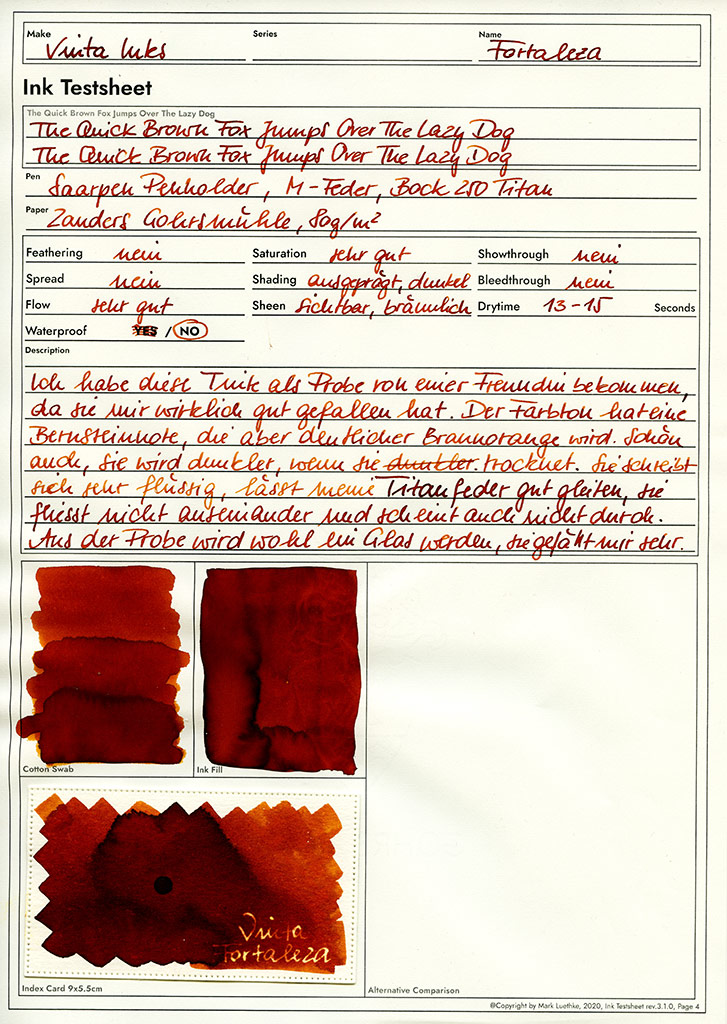 Make Vinta Inks Series Name Fortaleza
Ink Testsheet
The Quick Brown Fox Jumps Over The Lazy Dog
The Quick Brown Fox Jumps Over The Lazy Dog
The Quick Brown Fox Jumps Over The Lazy Dog
Pen Saarpen Penholder, M-Feder, Bock 250 Titan
Paper Zanders Gohrsmühle, 80g/m²
Feathering nein Saturation sehr gut Showthrough nein
Spread nein Shading ausgeprägt, dunkel Bleedthrough nein
Flow sehr gut Sheen sichtbar, bräunlich Drytime 13-15 Seconds
Waterproof YES / NO
Description
Ich habe diese Tinte als Probe von einer Freundin bekommen,
da sie mir wirklich gut gefallen hat. Der Farbton hat eine
Bernsteinnote, die aber deutlicher Braunorange wird. Schön
auch, sie wird dunkler, wenn sie dunkler trocknet. Sie schreibt
sich sehr flüssig, lässt meine Titanfeder gut gleiten, sie
fliesst nicht auseinander und scheint auch nicht durch.
Aus der Probe wird wohl ein Glas werden, sie gefällt mir sehr.
Cotton Swab Ink Fill
Vinta
Fortaleza
Index Card 9x5.5cm Alternative Comparison
@Copyright by Mark Luethke, 2020, Ink Testsheet rev.3.1.0, Page 4